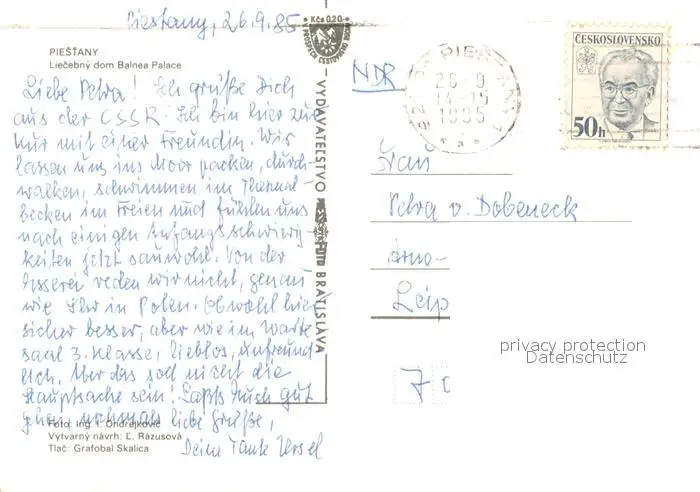 Piestany, 26.9.85
Kčs 0,20
PIEŠŤANY
Liečebný dom Balnea Palace
Liebe Petra! Ich grüße Dich
aus der CSSR. Ich bin hier zur
Kur mit einer Freundin. Wir
lassen uns ins Moor packen, durch-
walken, schwimmen im Thermal-
becken im Freien und fühlen uns
nach einigen Anfangsschwierig-
keiten jetzt sauwohl. Von der
Fresserei reden wir nicht, genau
wie Ihr in Polen. Obwohl hier
sicher besser, aber wie im Warte-
saal 3. Klasse, lieblos, unfreund-
lich. Aber das soll nicht die
Hauptsache sein! Laßts Euch gut
gehen, nochmals liebe Grüße,
Deine Tante Ursel
Foto: Ing. I. Ondrejkovič
Výtvarný návrh: Ľ. Rázusová
Tlač: Grafobal Skalica
VYDAVATEĽSTVO
BRATISLAVA
NDR
PIEŠŤANY 1
26.-9.
14-15
1985
ČESKOSLOVENSKO
50h
Frau
Petra v. Dobeneck
Arno-
Leip
7
privacy protection
Datenschutz